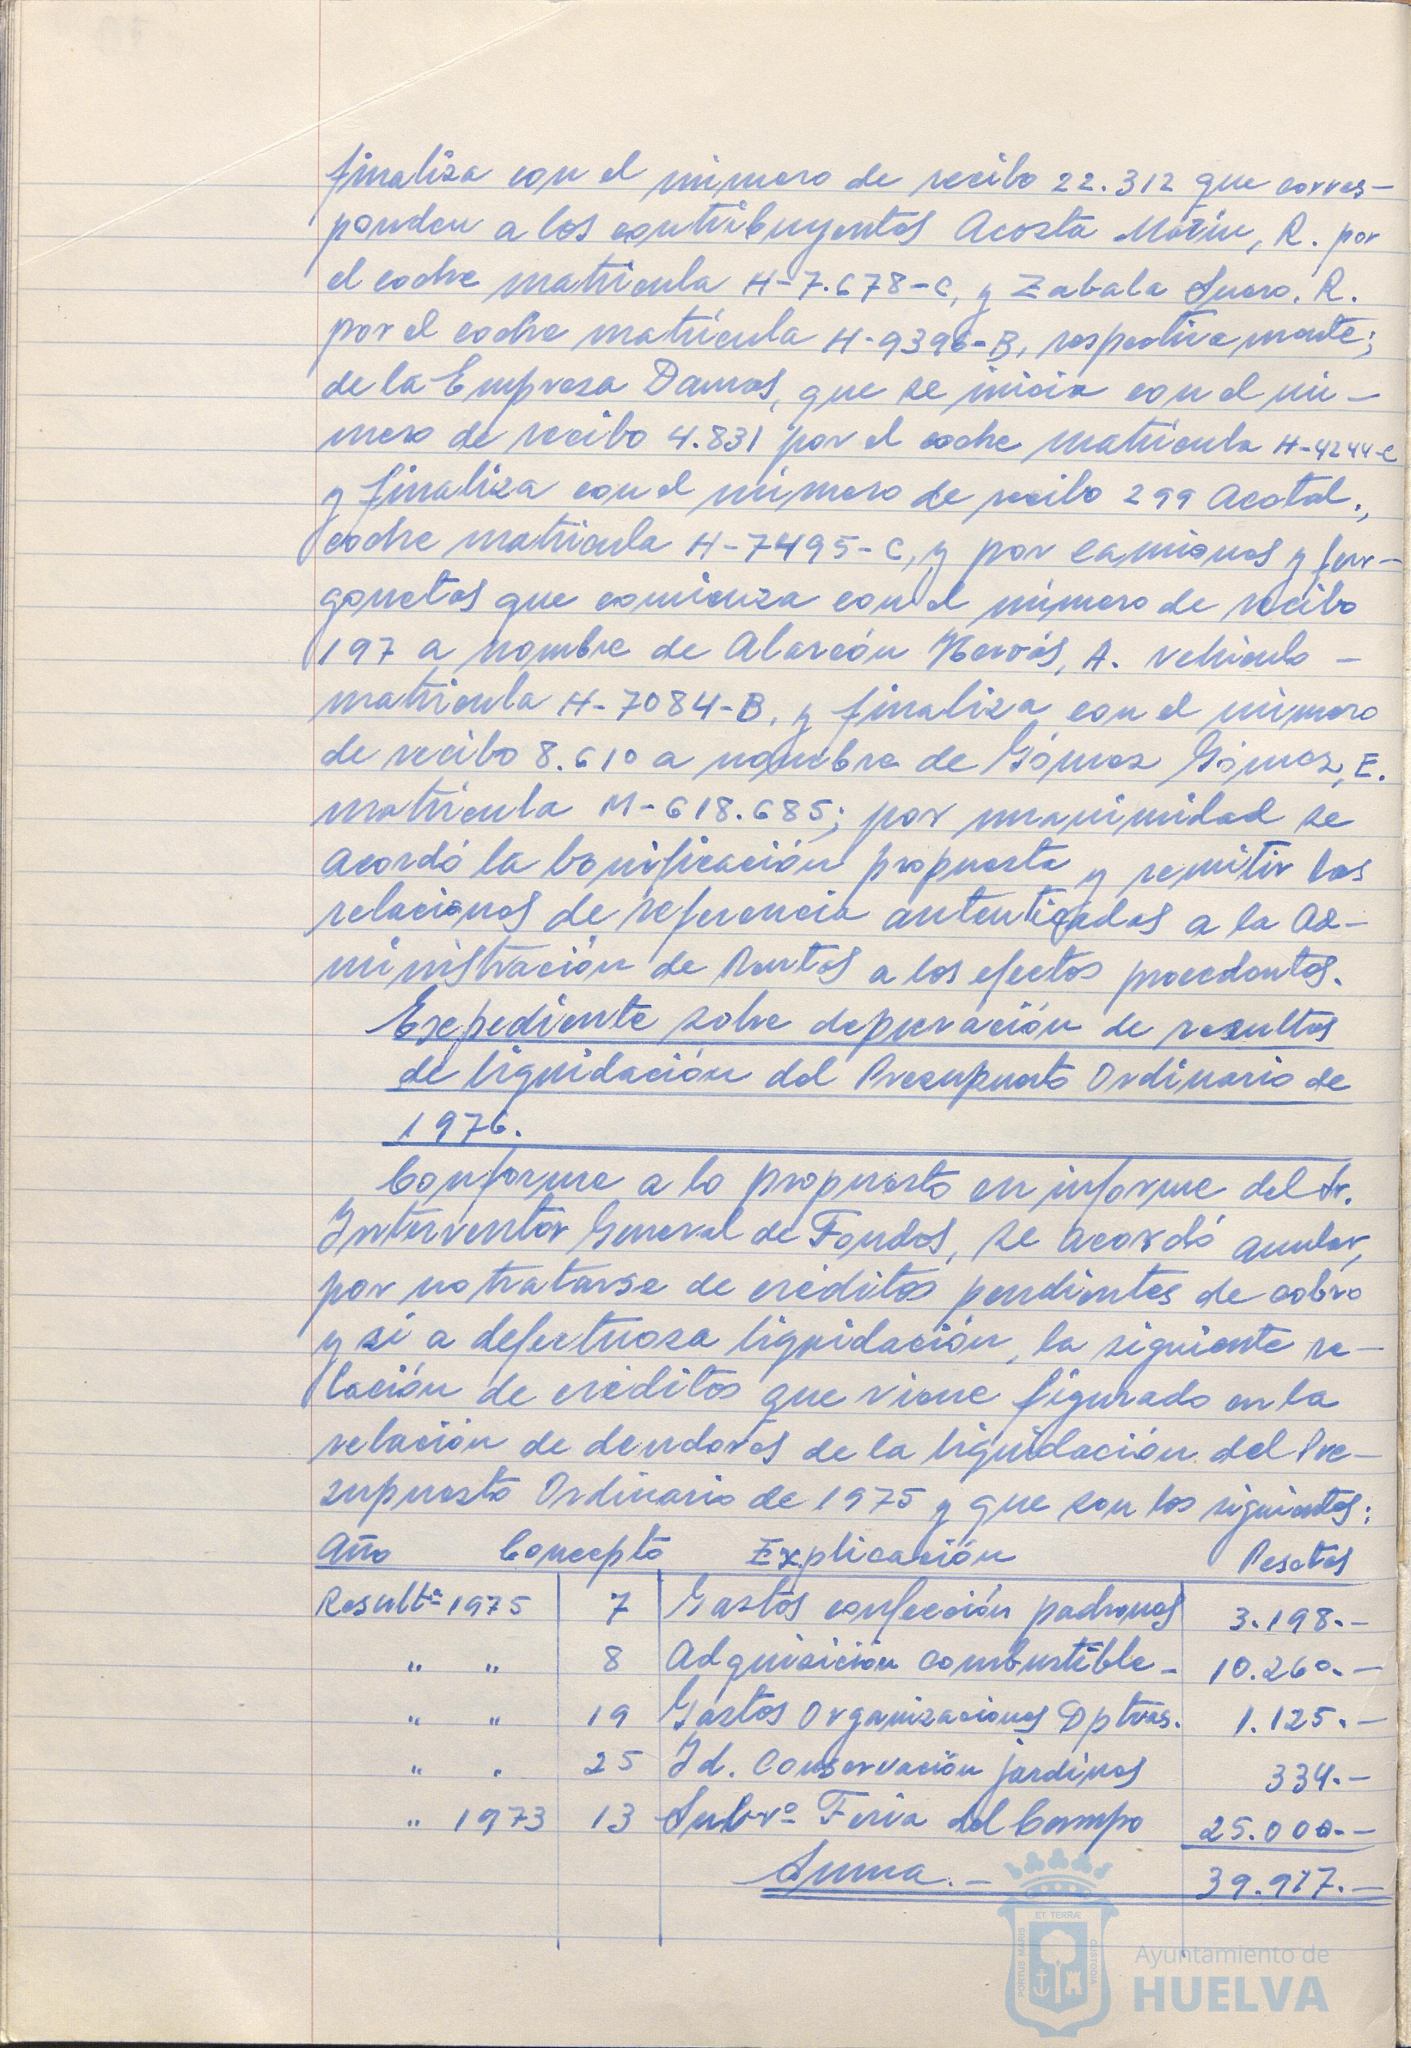 finaliza con el número de recibo 22.312 que corres-
ponden a los contribuyentes Acosta Marín, R. por
el coche matrícula H-7.678-C, y Zabala Suero. R.
por el coche matrícula H-9396-B, respectivamente;
de la Empresa Damas, que se inicia con el nú-
mero de recibo 4.831 por el coche matrícula H-4244-C
y finaliza con el número de recibo 299 Acotal.,
coche matrícula H-7495-C, y por camiones y fur-
gonetas que comienza con el número de recibo
197 a nombre de Alarcón Hervás, A. vehículo -
matrícula H-7084-B, y finaliza con el número
de recibo 8.610 a nombre de Gómez Gómez, E.
matrícula M-618.685; por unanimidad se
acordó la bonificación propuesta y remitir las
relaciones de referencia autenticadas a la Ad-
ministración de Rentas a los efectos procedentes.
Expediente sobre depuración de resultas
de liquidación del Presupuesto Ordinario de
1976.
Conforme a lo propuesto en informe del Sr.
Interventor General de Fondos, se acordó anular,
por no tratarse de créditos pendientes de cobro
y si a defectuosa liquidación, la siguiente re-
lación de créditos que viene figurado en la
relación de deudores de la liquidación del Pre-
supuesto Ordinario de 1975 y que son los siguientes:
Año Concepto Explicación Pesetas
Resultª 1975 7 Gastos confección padrones 3.198.-
" " 8 Adquisición combustible - 10.260.-
" " 19 Gastos Organizaciones Dptvas. 1.125.-
" " 25 Id. Conservación jardines 334.-
" 1973 13 Subvº Feria del Campo 25.000.-
Suma.- 39.917.-
ET TERRÆ
PORTUS MARIS
CUSTODIA
Ayuntamiento de
HUELVA